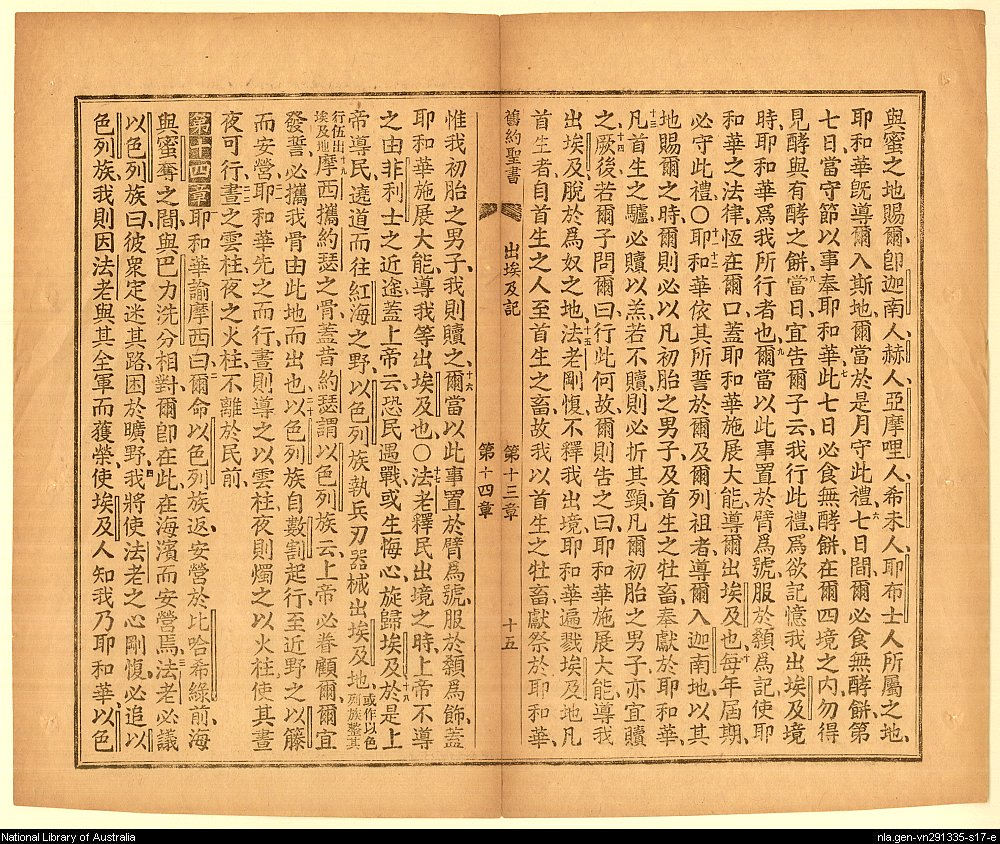 與蜜之地賜爾、卽迦南人、赫人、亞摩哩人、希未人、耶布士人所屬之地、
耶和華旣導爾入斯地、爾當於是月守此禮、六七日間爾必食無酵餅、第
七日當守節、以事奉耶和華、七此七日必食無酵餅、在爾四境之內、勿得
見酵與有酵之餅、八當日宜告爾子云、我行此禮、爲欲記憶我出埃及境
時、耶和華爲我所行者也、九爾當以此事置於臂爲號、服於額爲記、使耶
和華之法律恆在爾口、蓋耶和華施展大能、導爾出埃及也、十每年屆期、
必守此禮、〇十一十二耶和華依其所誓於爾及爾列祖者、導爾入迦南地、以其
地賜爾之時、爾則必以凡初胎之男子、及首生之牡畜、奉獻於耶和華、
十三凡首生之驢、必贖以羔、若不贖、則必折其頸、凡爾初胎之男子、亦宜贖
之、十四厥後若爾子問爾曰、行此何故、爾則告之曰、耶和華施展大能、導我
出埃及、脫於爲奴之地、十五法老剛愎、不釋我出境、耶和華遍戮埃及地凡
首生者、自首生之人、至首生之畜、故我以首生之牡畜、獻祭於耶和華、
舊約聖書 出埃及記 第十三章 第十四章 十五
惟我初胎之男子、我則贖之、十六爾當以此事置於臂爲號、服於額爲飾、蓋
耶和華施展大能、導我等出埃及也、〇十七法老釋民出境之時、上帝不導
之由非利士之近途、蓋上帝云、恐民遇戰、或生悔心、旋歸埃及、十八於是上
帝導民、遶道而往紅海之野、以色列族執兵刃器械出埃及地、或作以色列族整其
行伍出埃及地十九摩西攜約瑟之骨、蓋昔約瑟謂以色列族云、上帝必眷顧爾、爾宜
發誓、必攜我骨由此地而出也、二十以色列族自數割起行、至近野之以籐
而安營、二一耶和華先之而行、晝則導之以雲柱、夜則燭之以火柱、使其晝
夜可行、二二晝之雲柱、夜之火柱、不離於民前、
第十四章 耶和華諭摩西曰、二爾命以色列族返、安營於比哈希綠前、海
與蜜奪之間、與巴力洗分相對、爾卽在此、在海濱而安營焉、三法老必議
以色列族曰、彼衆定迷其路、困於曠野、四我將使法老之心剛愎、必追以
色列族、我則因法老與其全軍而獲榮、使埃及人知我乃耶和華、以色
National Library of Australia
nla.gen-vn291335-s17-e